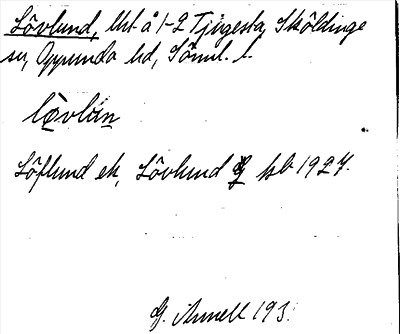 Lövlund, lht å 1-2 Tjugesta, Sköldinge
sn, Oppunda hd, Söml. l.
lövlun
Löflund ek, Lövlund kb 1927.
G. Annell 193